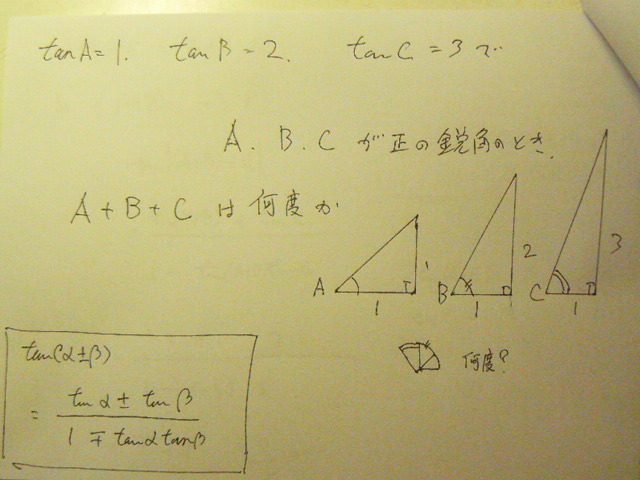 tanA=1. tanB=2. tanC=3で
A. B. Cが正の鋭角のとき.
A+B+Cは何度か
A 1 1
B 1 2
C 1 3
何度?
tan(α±β)
= tanα ± tanβ
1 ∓ tanα tanβ